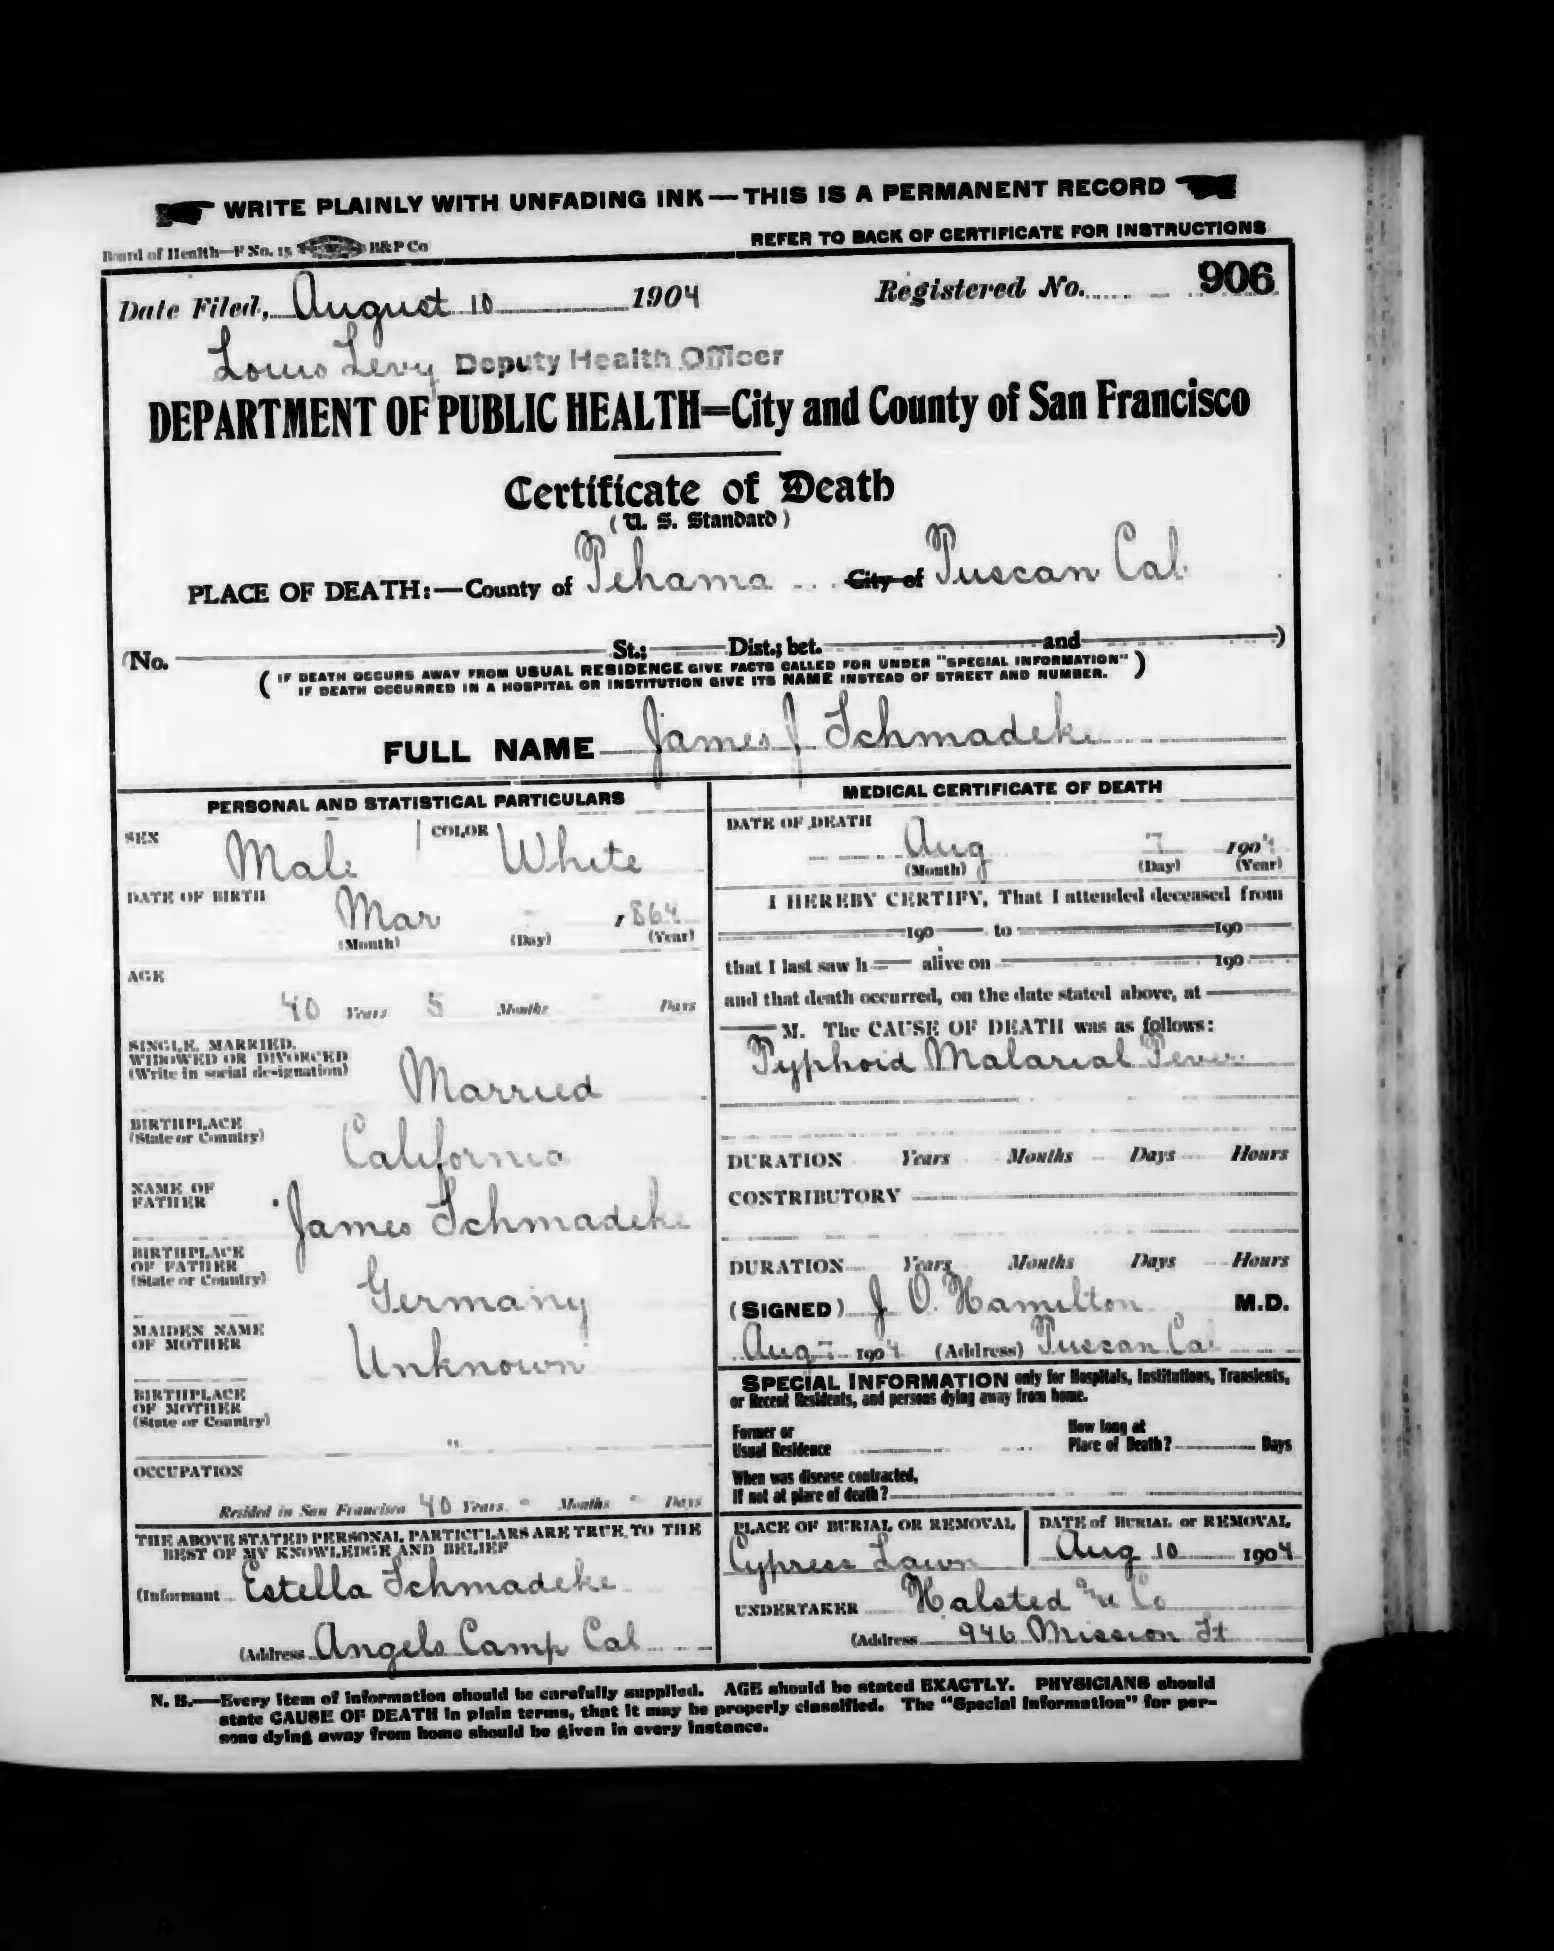 WRITE PLAINLY WITH UNFADING INK — THIS IS A PERMANENT RECORD
Board of Health—F No. 15 B&P Co
REFER TO BACK OF CERTIFICATE FOR INSTRUCTIONS
Date Filed, August 10 1904 Registered No. 906
Louis Levy Deputy Health Officer
DEPARTMENT OF PUBLIC HEALTH=City and County of San Francisco
Certificate of Death
(U. S. Standard)
PLACE OF DEATH:—County of Tehama City of Tuscan Cal
(No. St.; Dist.; bet. and )
(IF DEATH OCCURS AWAY FROM USUAL RESIDENCE GIVE FACTS CALLED FOR UNDER "SPECIAL INFORMATION"
IF DEATH OCCURRED IN A HOSPITAL OR INSTITUTION GIVE ITS NAME INSTEAD OF STREET AND NUMBER.)
FULL NAME James J Schmadeke
PERSONAL AND STATISTICAL PARTICULARS
SEX Male COLOR White
DATE OF BIRTH
Mar - 1864
(Month) (Day) (Year)
AGE
40 Years 5 Months - Days
SINGLE, MARRIED,
WIDOWED OR DIVORCED
(Write in social designation)
Married
BIRTHPLACE
(State or Country)
California
NAME OF
FATHER
James Schmadeke
BIRTHPLACE
OF FATHER
(State or Country)
Germany
MAIDEN NAME
OF MOTHER
Unknown
BIRTHPLACE
OF MOTHER
(State or Country)
"
OCCUPATION
Resided in San Francisco 40 Years - Months - Days
THE ABOVE STATED PERSONAL PARTICULARS ARE TRUE TO THE
BEST OF MY KNOWLEDGE AND BELIEF
(Informant Estella Schmadeke
(Address Angels Camp Cal
MEDICAL CERTIFICATE OF DEATH
DATE OF DEATH
Aug 7 1904
(Month) (Day) (Year)
I HEREBY CERTIFY, That I attended deceased from
190 to 190
that I last saw h alive on 190
and that death occurred, on the date stated above, at
M. The CAUSE OF DEATH was as follows:
Typhoid Malarial Fever
DURATION Years Months Days Hours
CONTRIBUTORY
DURATION Years Months Days Hours
(SIGNED) J. O. Hamilton M.D.
Aug 7 1904 (Address) Tuscan Cal
SPECIAL INFORMATION only for Hospitals, Institutions, Transients,
or Recent Residents, and persons dying away from home.
Former or
Usual Residence
How long at
Place of Death? Days
When was disease contracted,
If not at place of death?
PLACE OF BURIAL OR REMOVAL
Cypress Lawn
DATE of BURIAL or REMOVAL
Aug 10 1904
UNDERTAKER Halsted & Co
(Address 946 Mission St
N. B.—Every item of information should be carefully supplied. AGE should be stated EXACTLY. PHYSICIANS should
state CAUSE OF DEATH in plain terms, that it may be properly classified. The "Special Information" for per-
sons dying away from home should be given in every instance.